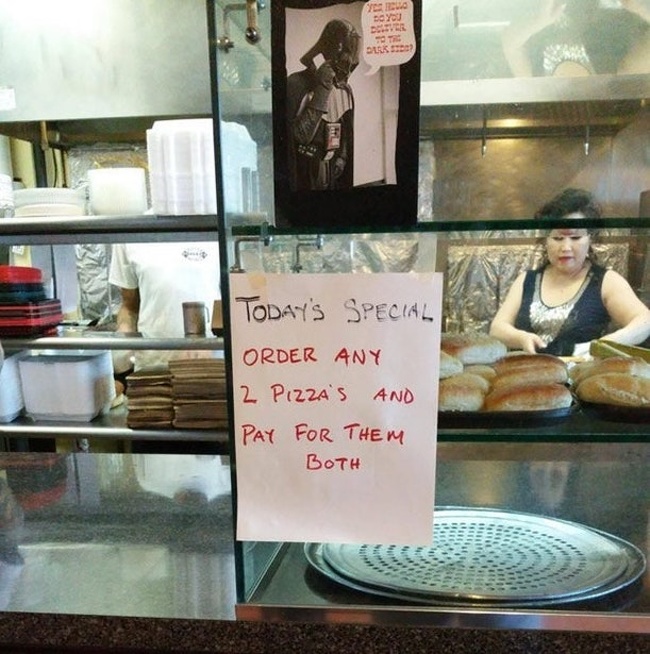 YES, HELLO
DO YOU
DELIVER
TO THE
DARK SIDE?
TODAY'S SPECIAL
ORDER ANY
2 PIZZA'S AND
PAY FOR THEM
BOTH